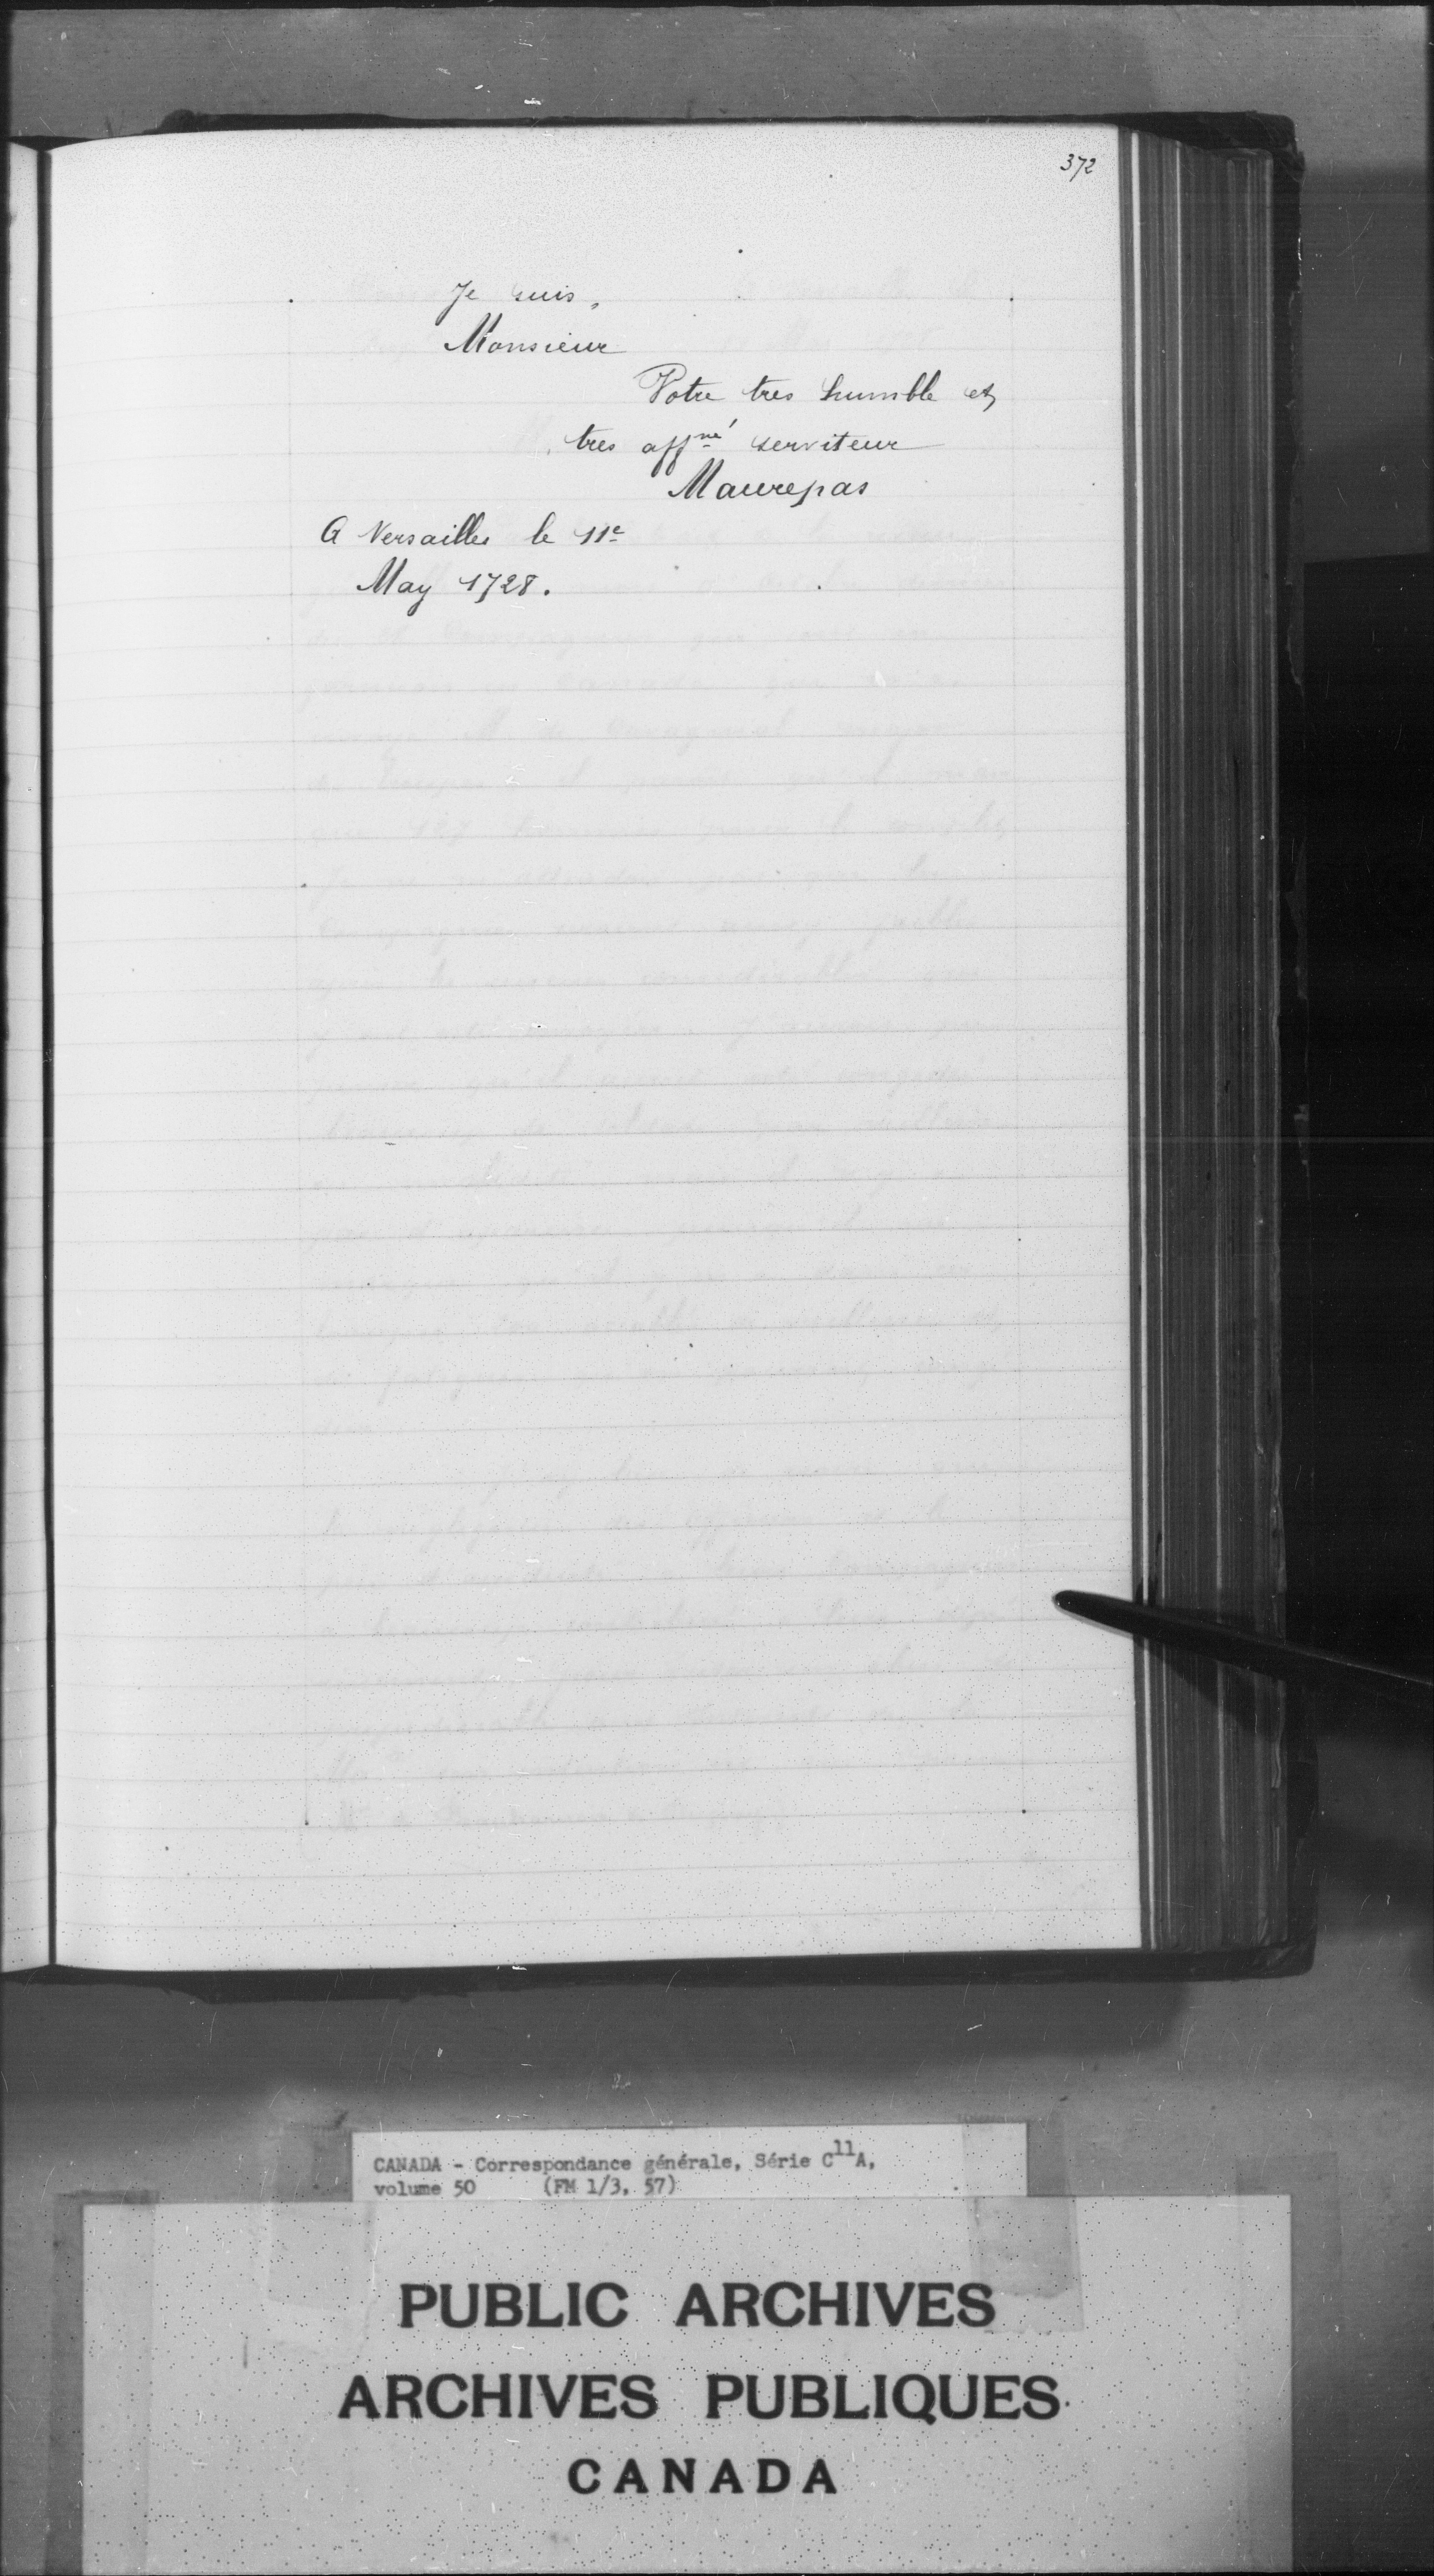 372
Je suis,
Monsieur
Votre tres humble et
tres affné serviteur
Maurepas
A Versailles le 11e
May 1728.
CANADA - Correspondance générale, Série C11A,
volume 50 (FM 1/3, 57)
PUBLIC ARCHIVES
ARCHIVES PUBLIQUES
CANADA